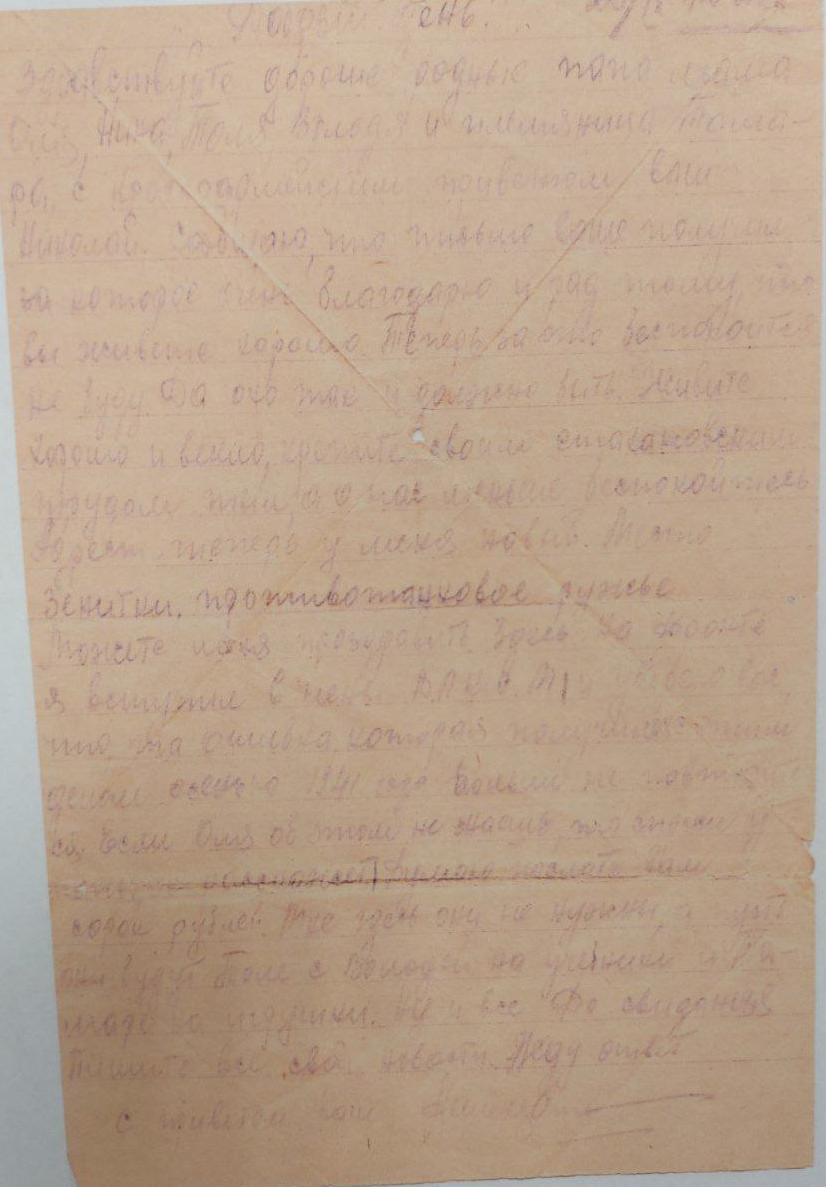 Добрый день.
Здравствуйте дорогие родные папа мама
Оля, Нина, Толя Володя и племяница Тама-
ра, с красноармейским приветом ваш
Николай. Сообщаю, что письмо ваше получил
за которое очень благодарю и рад тому, что
вы живете хорошо. Теперь за это беспокоится
не буду. Да оно так и должно быть. Живите
хорошо и весело, крепите своим стахановским
трудом тыл, а о нас меньше беспокойтесь
Адрест теперь у меня новый. Место
Зенитки, противотанковое ружье
Можете меня поздравить здесь на фронте
я вступил в члены ВЛКСМ, и
что эта ошибка, которая получилась с этим
делом осенью 1941 года больше не повторит-
ся. Если Оля об этом не знает, то спроси у
расскажет думаю послать вам
сорок рублей. Мне здесь они не нужны, а пусть
они будут Толе с Володей на учебники и Та-
маре на игрушки. Ну и все До свидания
Пишите все свои новости. Жду ответ
с приветом ваш